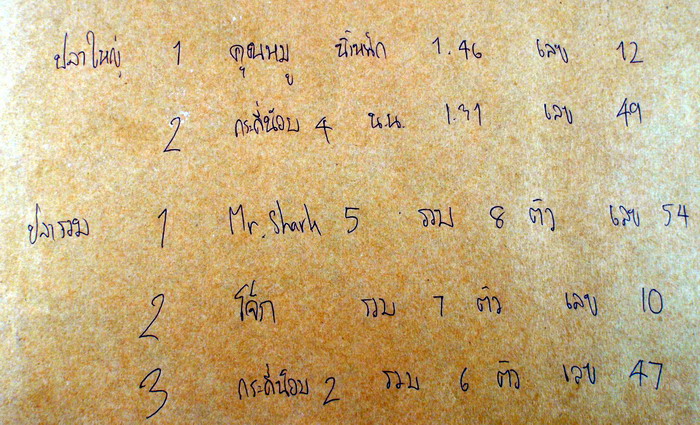 ปลาใหญ่ 1 คุณหมู น้ำหนัก 1.46 เลข 12
2 กระดี่น้อย 4 น.น. 1.31 เลข 49
ปลารวม 1 Mr. Shark 5 รวม 8 ตัว เลข 54
2 โจ้ก รวม 7 ตัว เลข 10
3 กระดี่น้อย 2 รวม 6 ตัว เลข 47